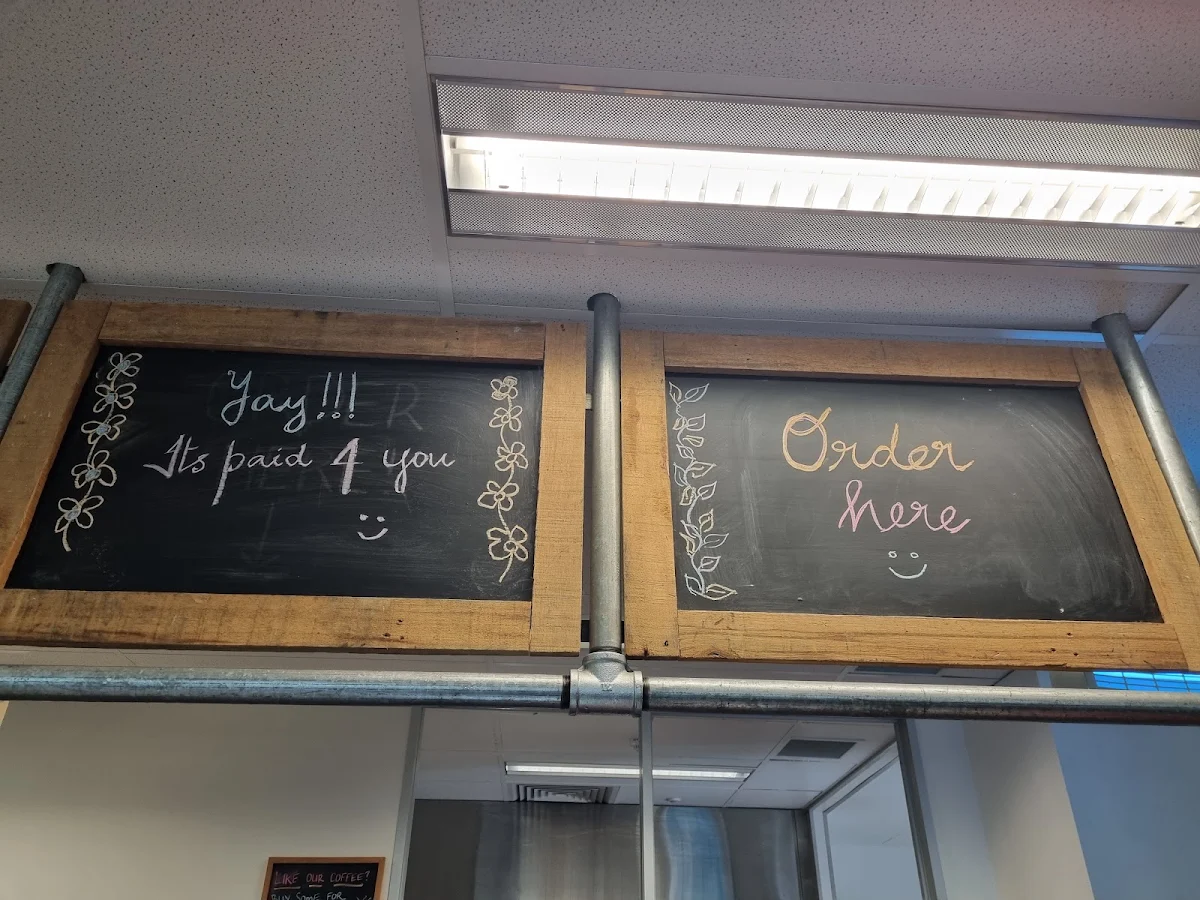 Yay!!!
Its paid 4 you
Order
here
LIKE OUR COFFEE?
BUY SOME FOR